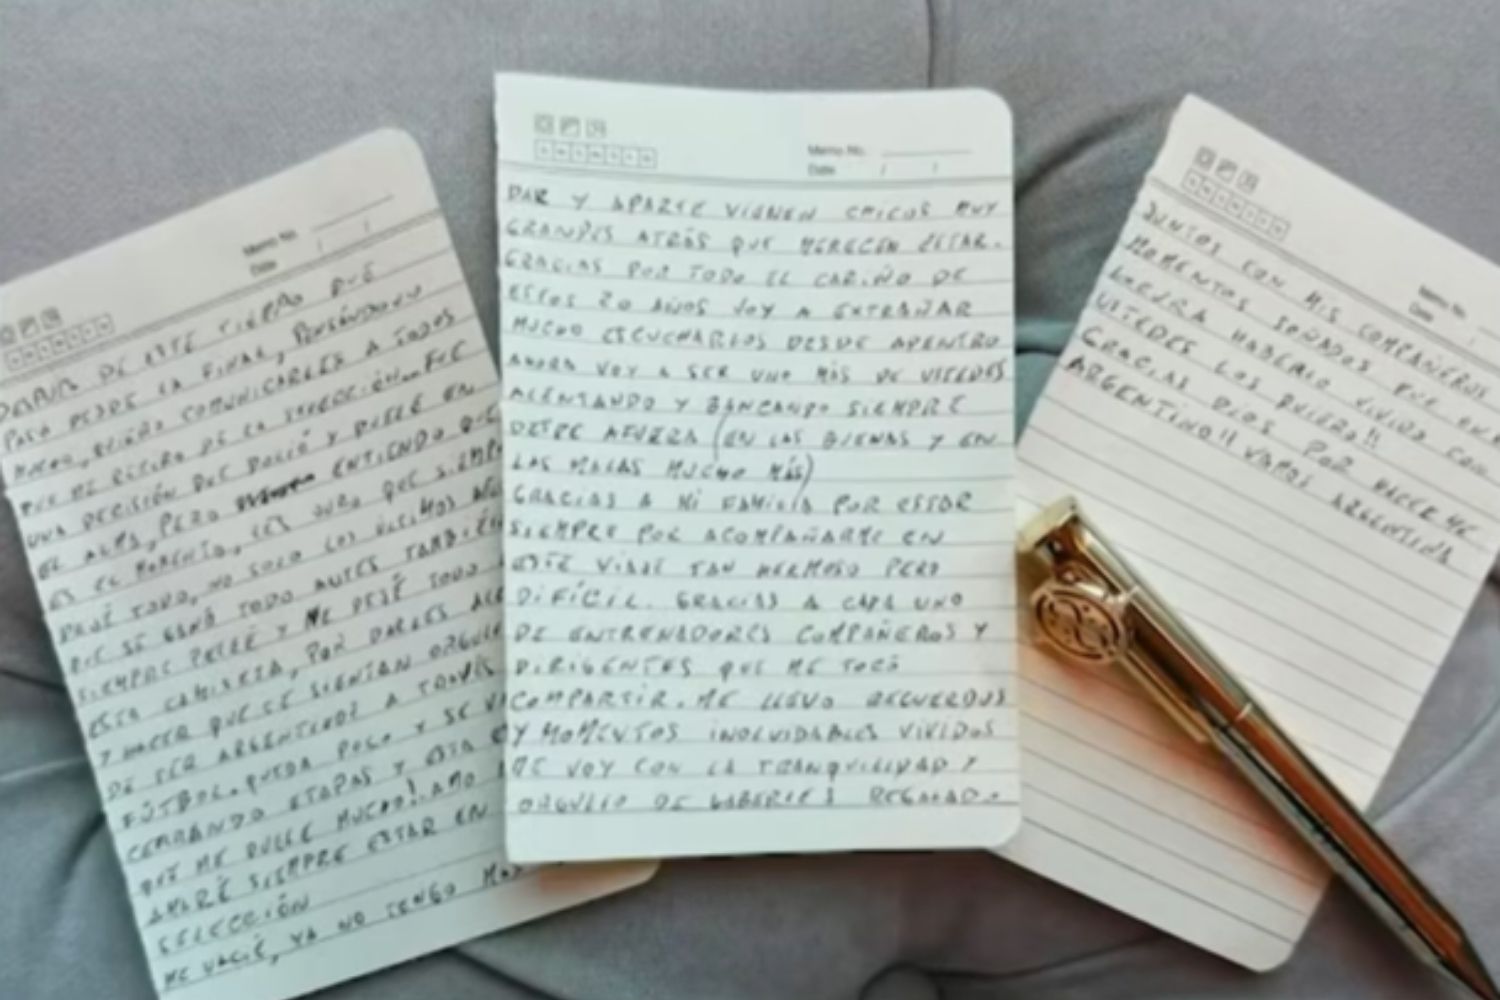 Memo No.
Date / /
DESPUÉS DE ESTE TIEMPO QUE
PASÓ DESDE LA FINAL, PENSÁNDOLO
MUCHO, QUIERO COMUNICARLES A TODOS
QUE ME RETIRO DE LA SELECCIÓN... FUE
UNA DECISIÓN QUE DOLIÓ Y DUELE EN
EL ALMA, PERO ENTIENDO QUE
ES EL MOMENTO, LES JURO QUE SIEMPRE
DEJÉ TODO, NO SOLO LOS ÚLTIMOS AÑOS
QUE SE GANÓ TODO ANTES TAMBIÉN
SIEMPRE PELEÉ Y ME DEJÉ TODO
ESTA CAMISETA, POR DARLES ALE
Y HACER QUE SE SIENTAN ORGULL
DE SER ARGENTINOS A TRAVÉS
FÚTBOL. QUEDA POCO Y SE VA
CERRANDO ETAPAS Y ESTA E
QUE ME DUELE MUCHO! AMO
AMARÉ SIEMPRE ESTAR EN
SELECCIÓN
ME VACIÉ, YA NO TENGO MÁS
Memo No.
Date / /
DAR Y APARTE VIENEN CHICOS MUY
GRANDES ATRÁS QUE MERECEN ESTAR.
GRACIAS POR TODO EL CARIÑO DE
ESTOS 20 AÑOS VOY A EXTRAÑAR
MUCHO ESCUCHARLOS DESDE ADENTRO
AHORA VOY A SER UNO MÁS DE USTEDES
ALENTANDO Y BANCANDO SIEMPRE
DESDE AFUERA (EN LAS BUENAS Y EN
LAS MALAS MUCHO MÁS)
GRACIAS A MI FAMILIA POR ESTAR
SIEMPRE POR ACOMPAÑARME EN
ESTE VIAJE TAN HERMOSO PERO
DIFÍCIL. GRACIAS A CADA UNO
DE ENTRENADORES COMPAÑEROS Y
DIRIGENTES QUE ME TOCÓ
COMPARTIR. ME LLEVO RECUERDOS
Y MOMENTOS INOLVIDABLES VIVIDOS
ME VOY CON LA TRANQUILIDAD Y
ORGULLO DE HABERLES REGALADO
Memo No.
Date /
JUNTOS CON MIS COMPAÑEROS
MOMENTOS SOÑADOS FUE UNA
LOCURA HABERLO VIVIDO CON
USTEDES LOS QUIERO!!
GRACIAS DIOS POR HACERME
ARGENTINO!! VAMOS ARGENTINA